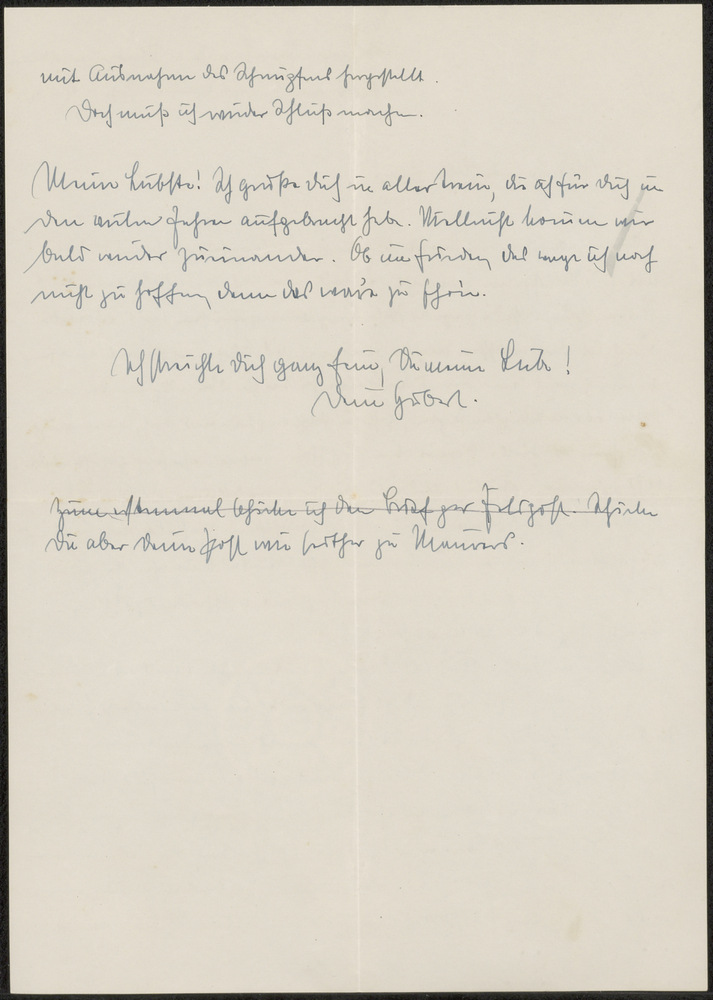 mit Ausnahme des Schnupfens hergestellt.
Doch muß ich wieder Schluß machen.
Meine Liebste! Ich grüße Dich in aller Treue, die ich für Dich in
den vielen Jahren aufgebracht habe. Vielleicht kommen wir
bald wieder zueinander. Ob im Frieden, das wage ich noch
nicht zu hoffen, denn das wäre zu schön.
Ich streichle Dich ganz fein, Du meine Liebe!
Dein Hubert.
Zum erstenmal schicke ich den Brief per Feldpost. Schicke
Du aber Deine Post wie seither zu